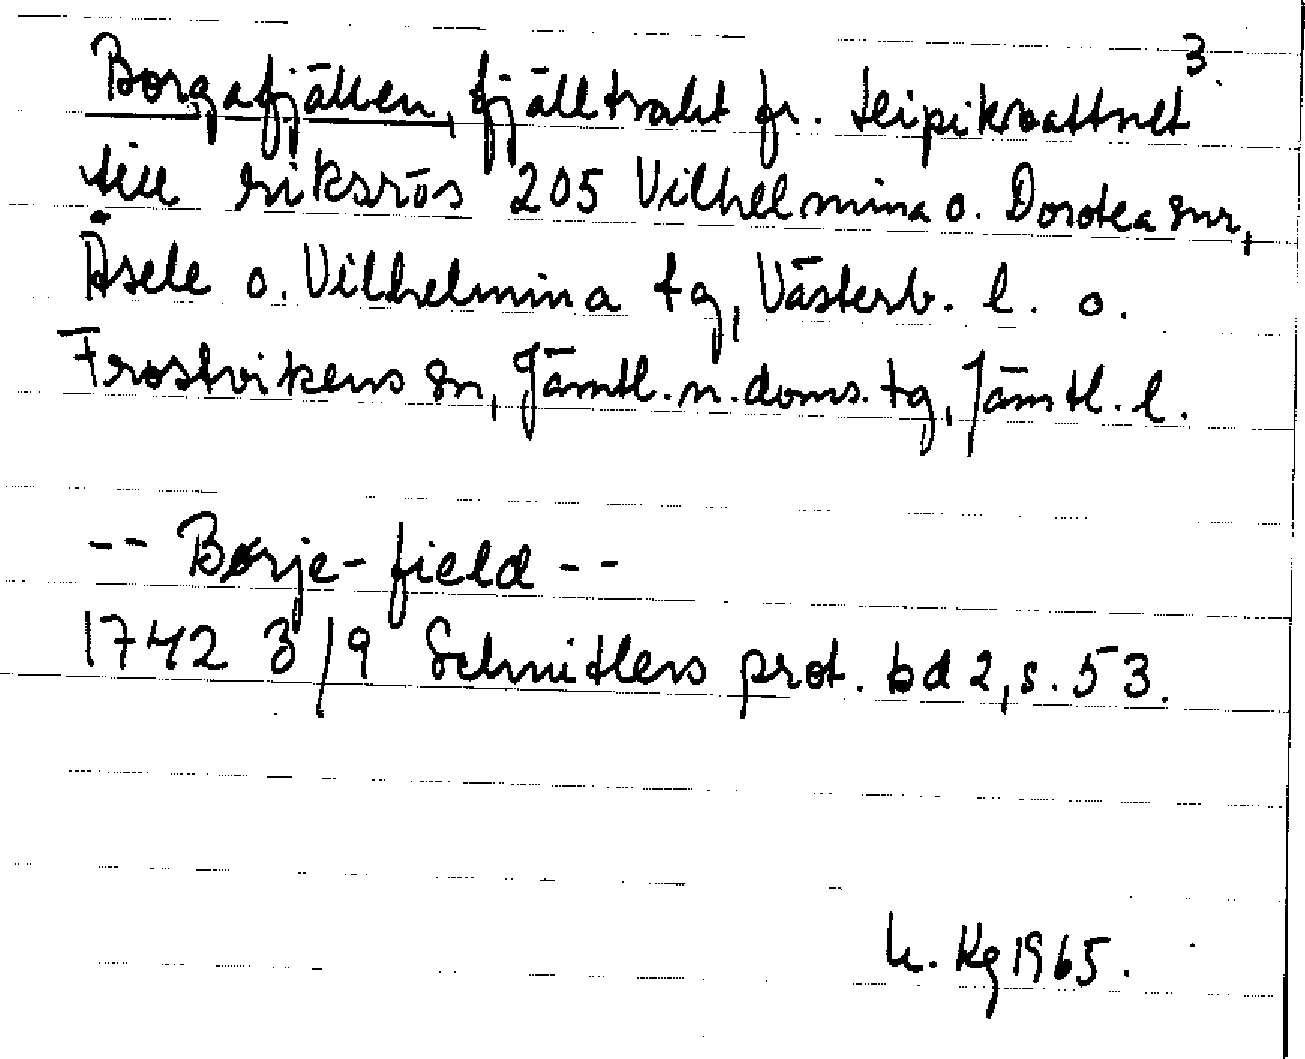 3.
Borgafjällen, fjälltrakt fr. Leipikvattnet
till riksrös 205 Vilhelmina o. Dorotea snr,
Åsele o. Vilhelmina tg, Västerb. l. o.
Frostvikens sn, Jämtl. n. doms. tg, Jämtl. l.
-- Børje-field --
1742 3/9 Schnitlers prot. bd 2, s. 53.
Kg 1965.